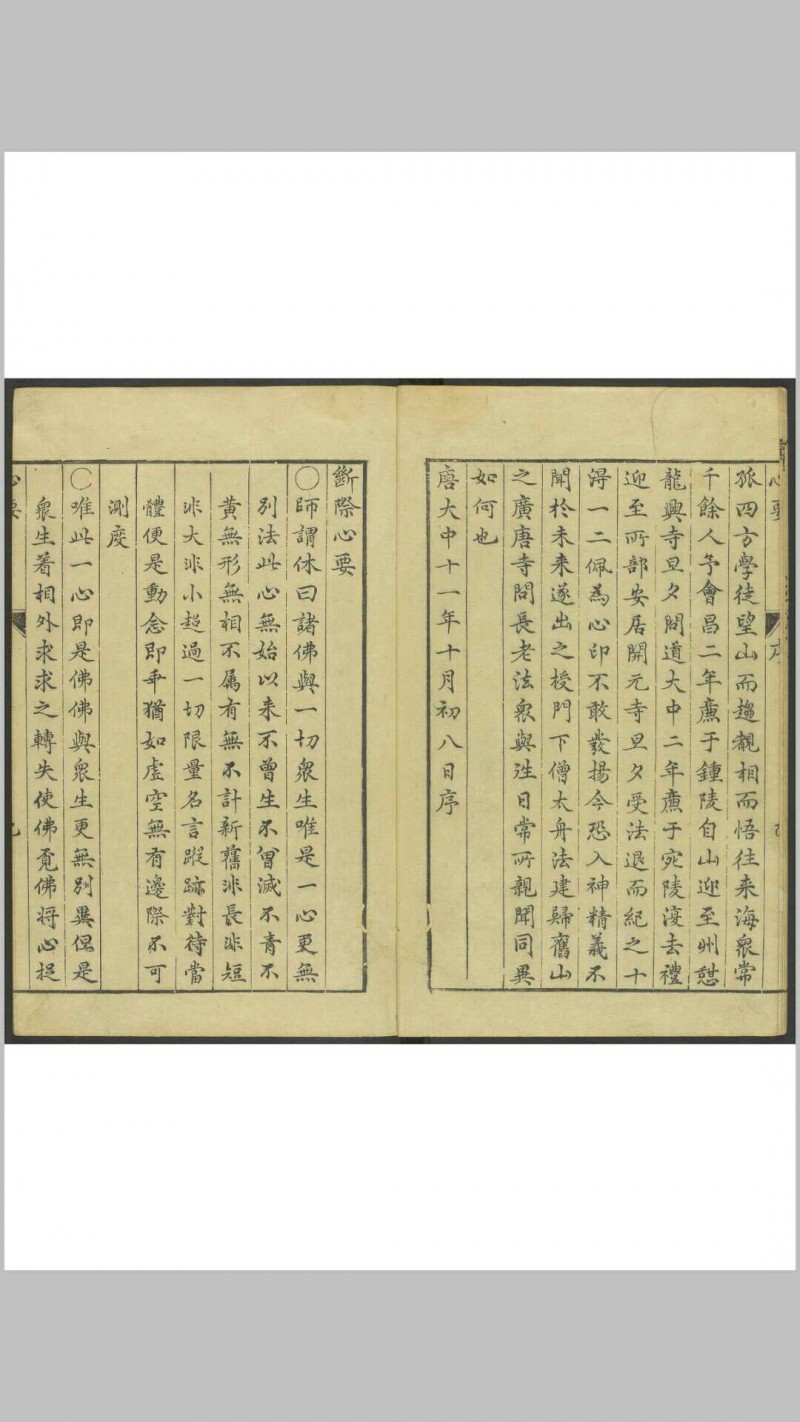 孤四方學徒望山而趨覩相而悟往来海衆常
千餘人予會昌二年廉于鍾陵自山迎至州憇
龍興寺旦夕問道大中二年廉于宛陵復去禮
迎至所部安居開元寺旦夕受法退而紀之十
得一二佩為心印不敢發揚今恐入神精義不
聞於未来遂出之授門下僧太舟法建歸舊山
之廣唐寺問長老法衆與徃日常所親聞同異
如何也
唐大中十一年十月初八日序
斷際心要
〇師謂休曰諸佛與一切衆生唯是一心更無
別法此心無始以来不曾生不曾滅不青不
黄無形無相不属有無不計新舊非長非短
非大非小超過一切限量名言蹤跡對待當
體便是動念即乖猶如虚空無有邊際不可
測度
〇唯此一心即是佛佛與衆生更無別異但是
衆生着相外求求之轉失使佛覓佛將心捉